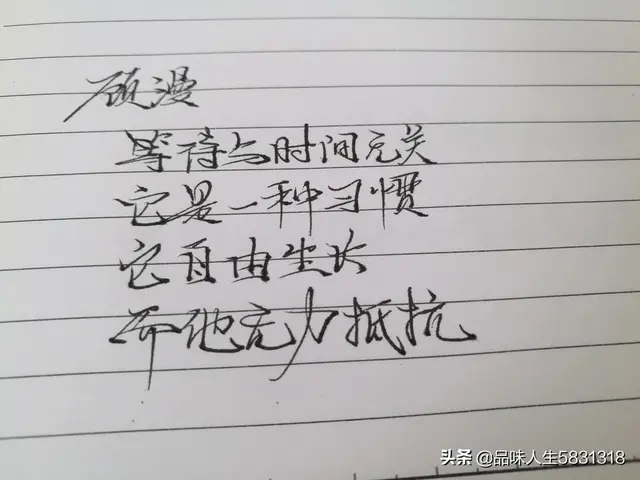 顾漫
等待与时间无关
它是一种习惯
它自由生长
而他无力抵抗
头条 @品味人生5831318